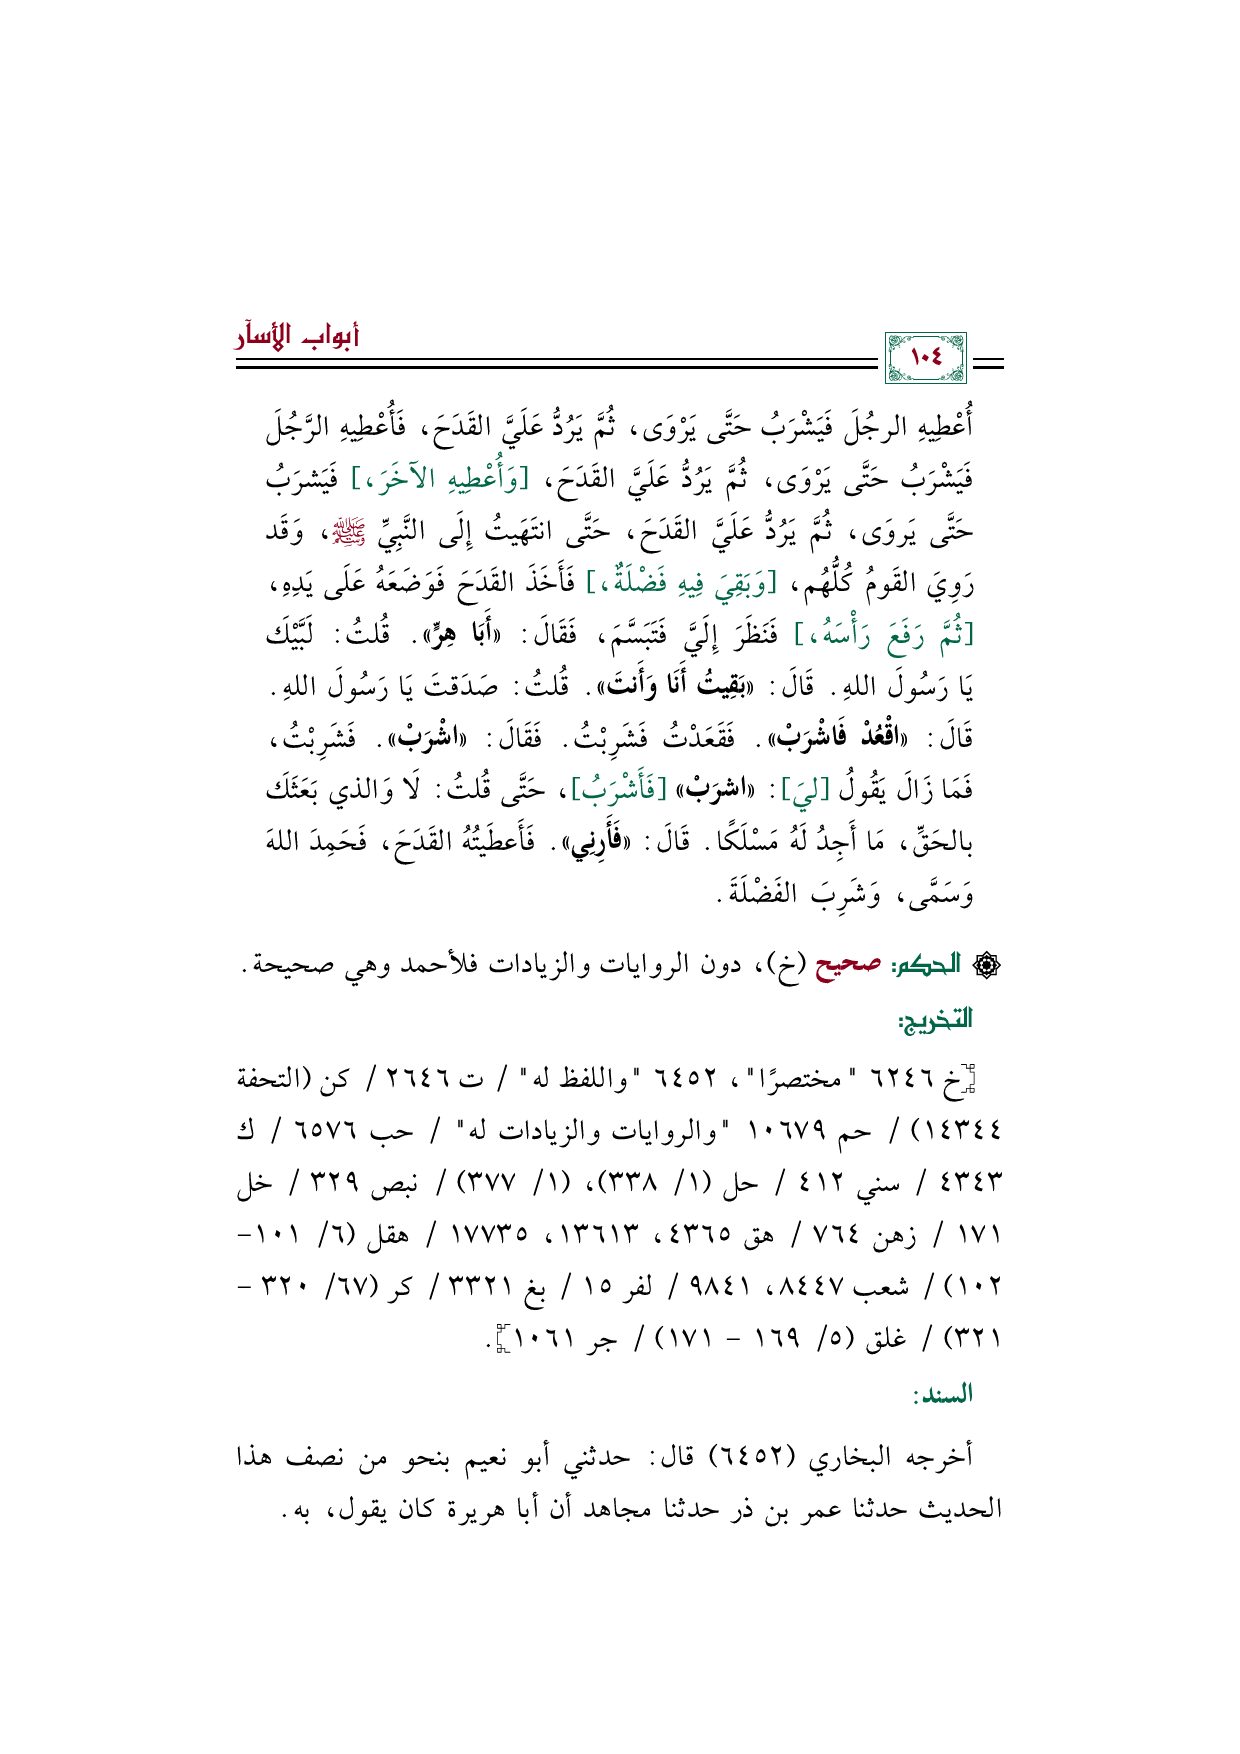 أبواب الأسآر
١٠٤
أُعْطِيهِ الرجُلَ فَيَشْرَبُ حَتَّى يَرْوَى، ثُمَّ يَرُدُّ عَلَيَّ القَدَحَ، فَأُعْطِيهِ الرَّجُلَ
فَيَشْرَبُ حَتَّى يَرْوَى، ثُمَّ يَرُدُّ عَلَيَّ القَدَحَ، [وَأُعْطِيهِ الآخَرَ،] فَيَشرَبُ
حَتَّى يَروَى، ثُمَّ يَرُدُّ عَلَيَّ القَدَحَ، حَتَّى انتَهَيتُ إِلَى النَّبِيِّ ﷺ، وَقَد
رَوِيَ القَومُ كُلُّهُم، [وَبَقِيَ فِيهِ فَضْلَةٌ،] فَأَخَذَ القَدَحَ فَوَضَعَهُ عَلَى يَدِهِ،
[ثُمَّ رَفَعَ رَأْسَهُ،] فَنَظَرَ إِلَيَّ فَتَبَسَّمَ، فَقَالَ: «أَبَا هِرٍّ». قُلتُ: لَبَّيْكَ
يَا رَسُولَ اللهِ. قَالَ: «بَقِيتُ أَنَا وَأَنتَ». قُلتُ: صَدَقتَ يَا رَسُولَ اللهِ.
قَالَ: «اقْعُدْ فَاشْرَبْ». فَقَعَدْتُ فَشَرِبْتُ. فَقَالَ: «اشْرَبْ». فَشَرِبْتُ،
فَمَا زَالَ يَقُولُ [ليَ]: «اشرَبْ» [فَأَشْرَبُ]، حَتَّى قُلتُ: لَا وَالذي بَعَثَكَ
بالحَقِّ، مَا أَجِدُ لَهُ مَسْلَكًا. قَالَ: «فَأَرِنِي». فَأَعطَيتُهُ القَدَحَ، فَحَمِدَ اللهَ
وَسَمَّى، وَشَرِبَ الفَضْلَةَ.
الحكم: صحيح (خ)، دون الروايات والزيادات فلأحمد وهي صحيحة.
التخريج:
[خ ٦٢٤٦ "مختصرًا"، ٦٤٥٢ "واللفظ له" / ت ٢٦٤٦ / كن (التحفة
١٤٣٤٤) / حم ١٠٦٧٩ "والروايات والزيادات له" / حب ٦٥٧٦ / ك
٤٣٤٣ / سني ٤١٢ / حل (١/ ٣٣٨)، (١/ ٣٧٧) / نبص ٣٢٩ / خل
١٧١ / زهن ٧٦٤ / هق ٤٣٦٥، ١٣٦١٣، ١٧٧٣٥ / هقل (٦/ ١٠١-
١٠٢) / شعب ٨٤٤٧، ٩٨٤١ / لفر ١٥ / بغ ٣٣٢١ / كر (٦٧/ ٣٢٠ -
٣٢١) / غلق (٥/ ١٦٩ - ١٧١) / جر ١٠٦١].
السند:
أخرجه البخاري (٦٤٥٢) قال: حدثني أبو نعيم بنحو من نصف هذا
الحديث حدثنا عمر بن ذر حدثنا مجاهد أن أبا هريرة كان يقول، به.